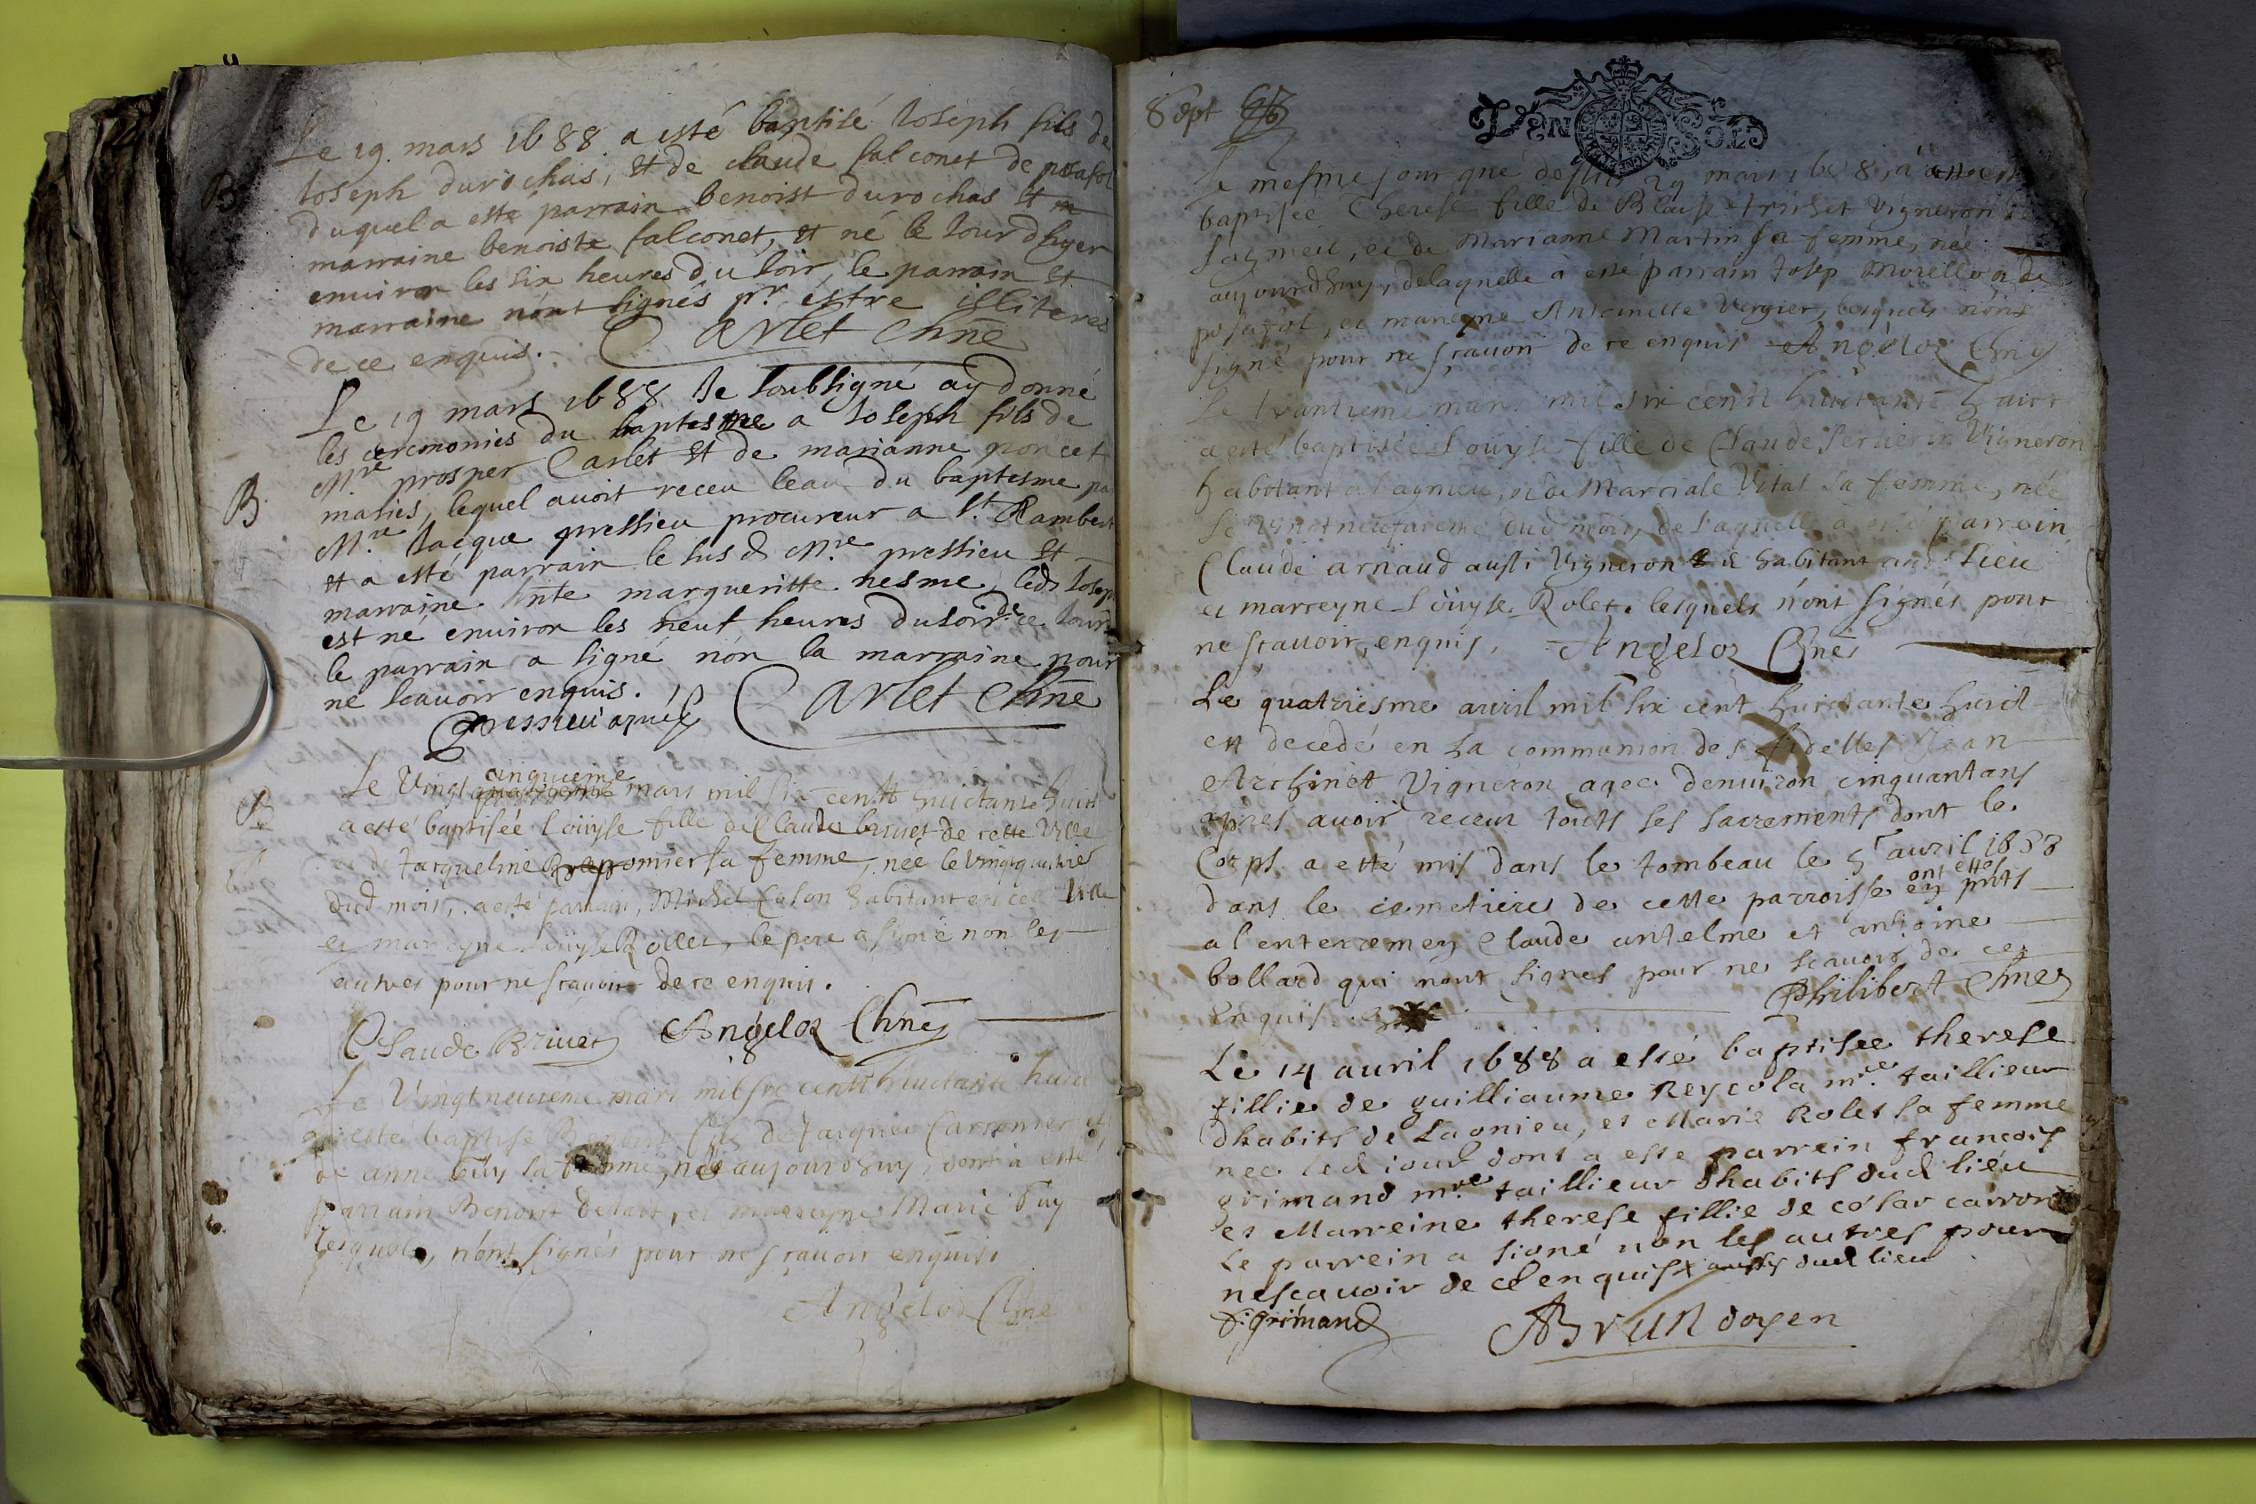 Le 19 mars 1688 a esté baptisé Joseph fils de
Joseph durochas, et de claude falconet de posafol
duquel a esté parrain benoist durochas et
marraine benoiste falconet, et né le jour d'hyer
environ les six heures du soir, le parrain et
marraine n'ont signés pr. estre illiteres
de ce enquis. Carlet Chne
B
Le 19 mars 1688 Je soubsigné ay donné
les ceremonies du baptesme a Joseph fils de
Mre prosper Carlet et de marianne poncet
maries, lequel avoit receu leau du baptesme pa
Mre Jacque pressieu procureur a St Rambert
et a esté parrain le susd Mre pressieu et
marraine margueritte nesme, led Josep
est né environ les neuf heures du soir de ce Jour
le parrain a signé non la marraine pour
ne scavoir enquis. Carlet Chne
Pressieu
B
cinquieme
Le Vingt mars mil six centt huictante huict
a esté baptisée Louyse fille de Claude brivet de cette Ville
et de Jacqueline sa femme, née le vingtquatrie
dud mois, a esté parrain, Michel habitant en cette Ville
et mareyne Louyse Rollet, le pere a signé non les
autres pour ne scavoir de ce enquis.
Claude Brivet Angelot Chne
Le Vingtneuvieme mars mil six centt huictante huict
a esté baptisé fils de Jacques Carronier et
de anne Guy sa femme, né aujourdhuy, dont a esté
parrain Benoist, et marreyne Marie Guy
lesquels, n'ont signés pour ne scavoir enquis
Angelot Chne
B
Sept
GEN SOLS
Le mesme jour que dessus 29 mars 1688 a esté
baptisée Therese fille de Blaise trichet Vigneron
Lagnieu, et de Marianne Martin sa femme, née
aujourdhuy, delaquelle a esté parrain Josep Morellon de
posafol, et mareyne Antoinette Vergier, lesquels n'ont
signé pour ne scavoir de ce enquis Angelot Chne
Le trantieme mars mil six centt huictante huict
a esté baptisée Louyse fille de Claude Vigneron
habitant a Lagnieu, et de Marciale Vital sa femme, née
le vingtneufvieme dud mois, de laquelle a esté parrain
Claude arnaud aussi Vigneron habitant aud Lieu
et marreyne Louyse Rolet. lesquels n'ont signés pour
ne scavoir, enquis, Angelot Chne
Le quatriesme avril mil six cent huictante huict
est decedé en la communion des fidelles Jean
Archinet Vigneron ageé denviron cinquant ans
apres avoir receu touts ses sacrements dont le
Corps a etté mis dans le tombeau le 5r avril 1688
ont ettes
dans le cemetiere de cette parroisse pnts
a l'enterremen Claude antelme et antoine
bollard qui nont signes pour ne scavoir de ce
Enquis Philibert Chne
Le 14 avril 1688 a esté baptisee therese
fillie de guilliaume Reycola mre. taillieur
dhabits de Lagnieu, et Marie Rolet sa femme
nee led iour dont a este parrein francois
grimand mre taillieur dhabits dud lieu
et Marreine therese fillie de cesar carron
Le parrein a signé non les autres pour
ne scavoir de ce enquis aussy dud lieu
F. Grimand ABrun doyen